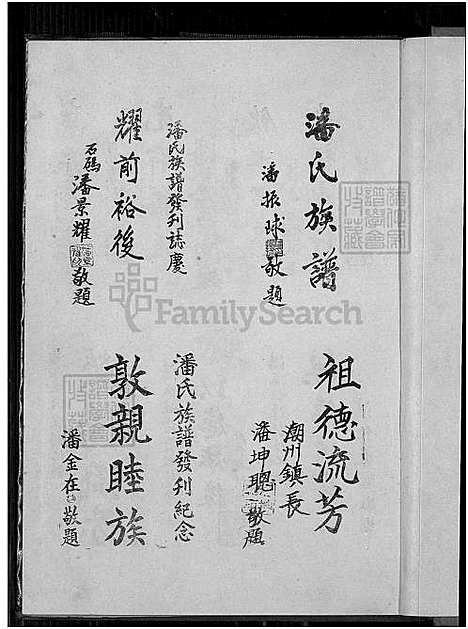 潘氏族譜
潘振球敬題
潘氏族譜發刊誌慶
耀前裕後
石碼潘景耀敬題
祖德流芳
潮州鎮長
潘坤聰敬題
潘氏族譜發刊紀念
敦親睦族
潘金在敬題
FamilySearch